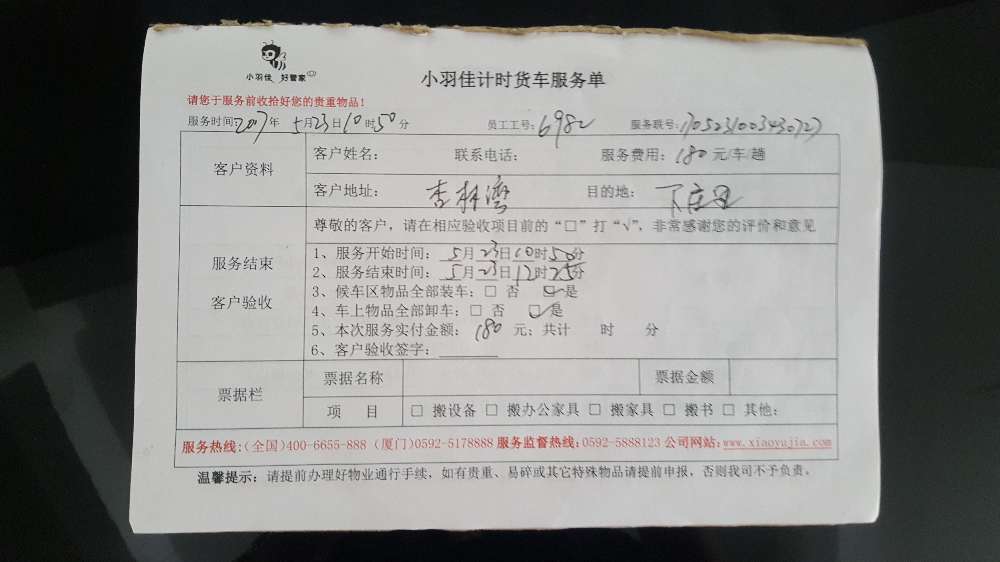 小羽佳 好管家
小羽佳计时货车服务单
请您于服务前收拾好您的贵重物品！
服务时间2017年 5月23日10时50分 员工工号：6982 服务联号：
客户资料
客户姓名： 联系电话： 服务费用：180元/车/趟
客户地址：杏林湾 目的地：
服务结束
客户验收
尊敬的客户，请在相应验收项目前的“□”打“√”，非常感谢您的评价和意见
1、服务开始时间：5月23日10时50分
2、服务结束时间：5月23日12时25分
3、候车区物品全部装车：□ 否 ☑是
4、车上物品全部卸车：□ 否 ☑是
5、本次服务实付金额：180 元；共计 时 分
6、客户验收签字：
票据栏
票据名称 票据金额
项 目 □ 搬设备 □ 搬办公家具 □ 搬家具 □ 搬书 □ 其他：
服务热线：(全国)400-6655-888 (厦门)0592-5178888 服务监督热线：0592-5888123 公司网站：www.xiaoyujia.com
温馨提示：请提前办理好物业通行手续，如有贵重、易碎或其它特殊物品请提前申报，否则我司不予负责。